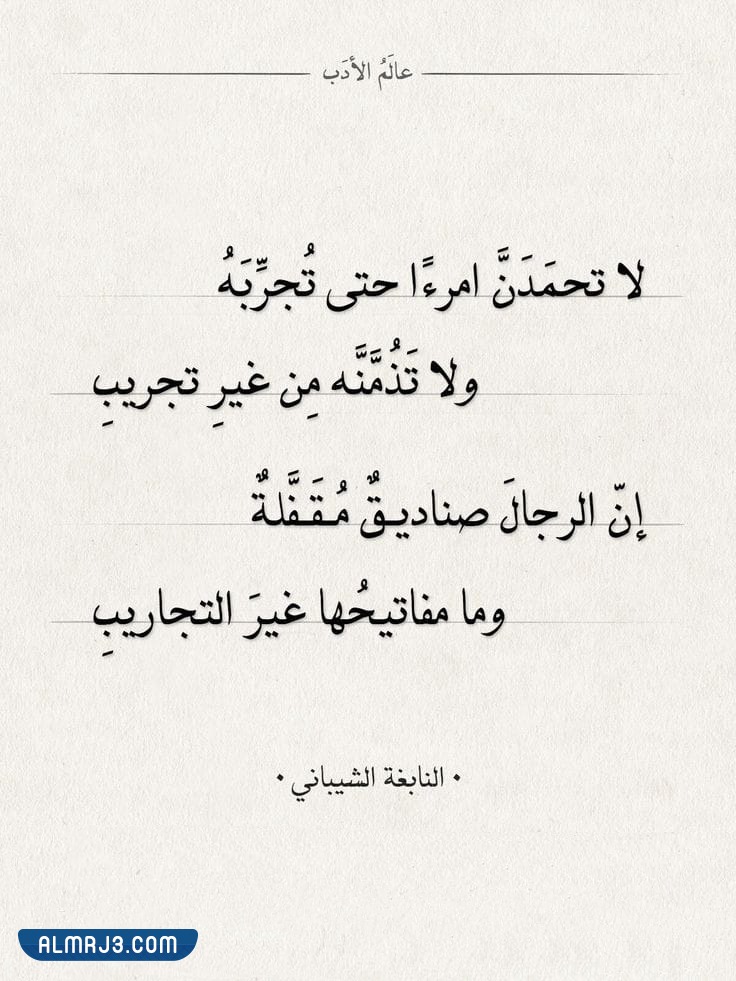 عالَمُ الأدَب
لا تحمَدَنَّ امرءًا حتى تُجرِّبَهُ
ولا تَذُمَّنَّه مِن غيرِ تجريبِ
إنّ الرجالَ صناديقٌ مُقَفَّلةٌ
وما مفاتيحُها غيرَ التجاريبِ
• النابغة الشيباني •
ALMRJ3.COM